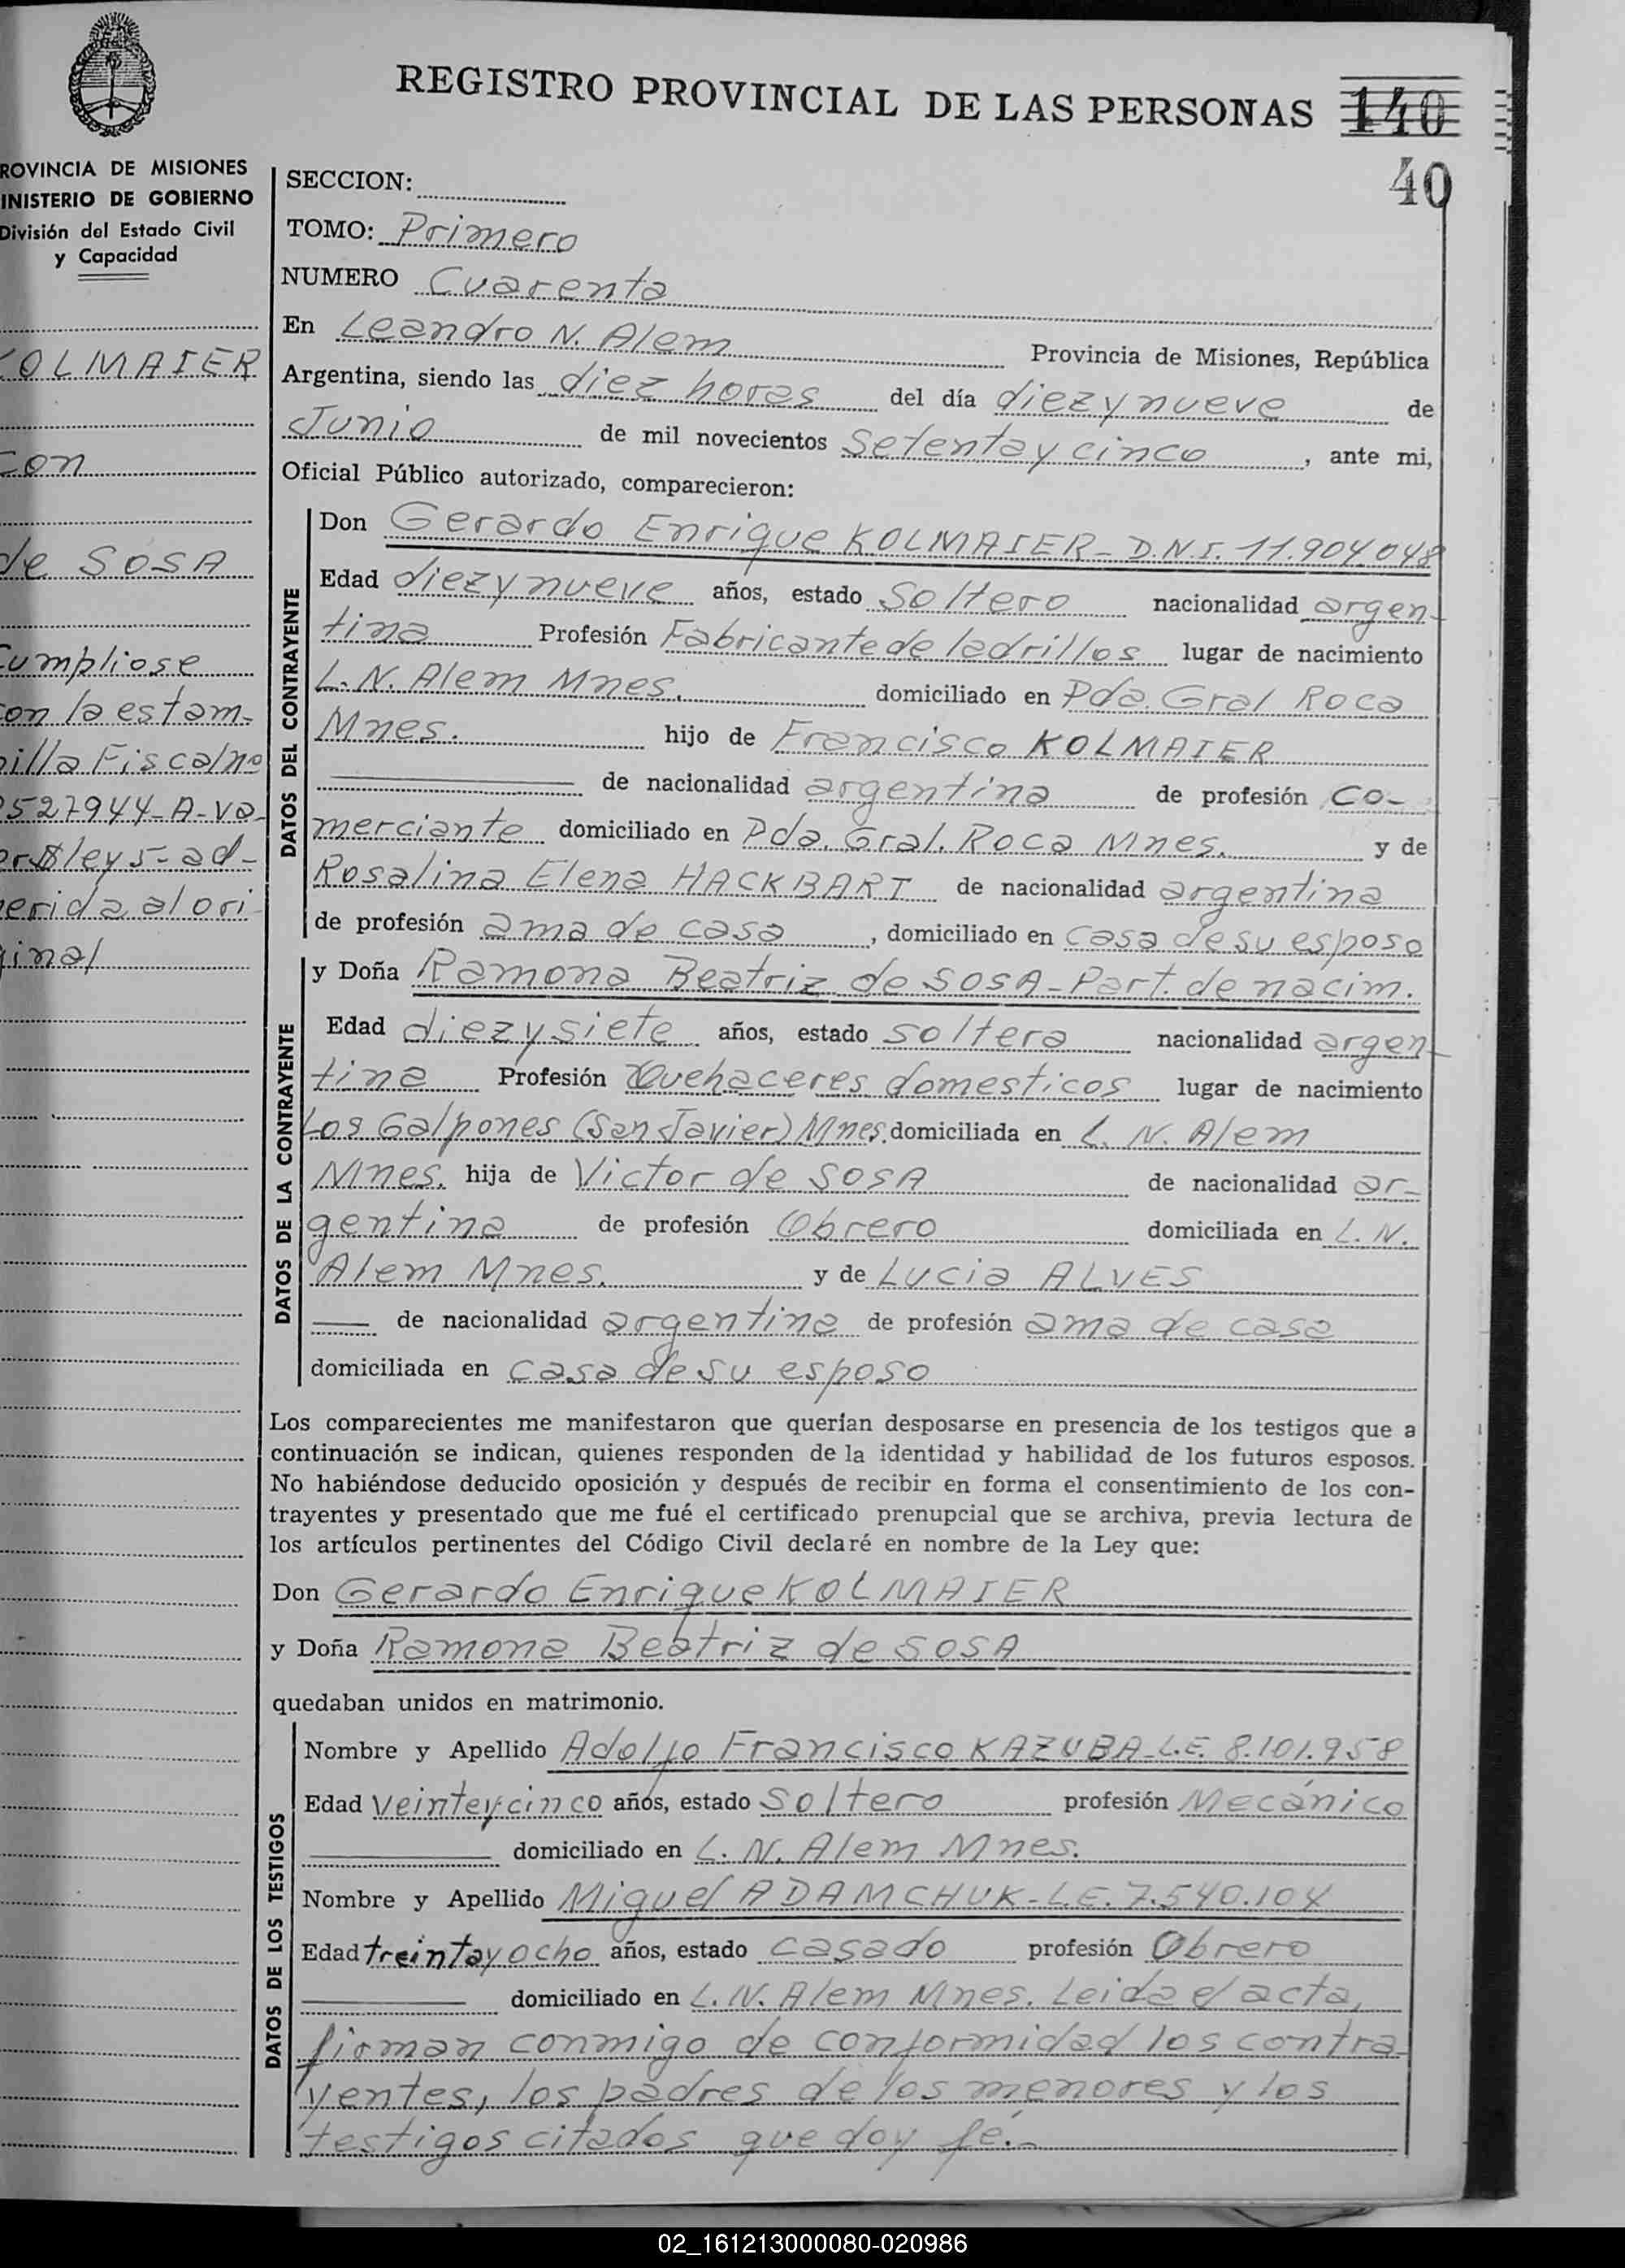 REGISTRO PROVINCIAL DE LAS PERSONAS 140
40
ROVINCIA DE MISIONES
INISTERIO DE GOBIERNO
División del Estado Civil
y Capacidad
KOLMAIER
con
de SOSA
Cumpliose
con la estam-
pilla Fiscal no
0527944-A-va-
or $ ley 5- ad-
herida al ori
ginal
SECCION:
TOMO: Primero
NUMERO Cuarenta
En Leandro N. Alem Provincia de Misiones, República
Argentina, siendo las diez horas del día diez y nueve de
Junio de mil novecientos Setenta y cinco, ante mi,
Oficial Público autorizado, comparecieron:
DATOS DEL CONTRAYENTE
Don Gerardo Enrique KOLMAIER- D.N.I. 11.904.048
Edad diez y nueve años, estado Soltero nacionalidad argen-
tina Profesión Fabricante de ladrillos lugar de nacimiento
L. N. Alem Mnes. domiciliado en Pda. Gral Roca
Mnes. hijo de Francisco KOLMAIER
de nacionalidad argentina de profesión co-
merciante domiciliado en Pda. Gral. Roca Mnes. y de
Rosalina Elena HACKBART de nacionalidad argentina
de profesión ama de casa, domiciliado en casa de su esposo
DATOS DE LA CONTRAYENTE
y Doña Ramona Beatriz de SOSA- Part. de nacim.
Edad diez y siete años, estado soltera nacionalidad argen-
tina Profesión Quehaceres domesticos lugar de nacimiento
Los Galpones (San Javier) Mnes. domiciliada en L. N. Alem
Mnes. hija de Victor de SOSA de nacionalidad ar-
gentina de profesión Obrero domiciliada en L. N.
Alem Mnes. y de Lucia ALVES
de nacionalidad argentina de profesión ama de casa
domiciliada en casa de su esposo
Los comparecientes me manifestaron que querían desposarse en presencia de los testigos que a
continuación se indican, quienes responden de la identidad y habilidad de los futuros esposos.
No habiéndose deducido oposición y después de recibir en forma el consentimiento de los con-
trayentes y presentado que me fué el certificado prenupcial que se archiva, previa lectura de
los artículos pertinentes del Código Civil declaré en nombre de la Ley que:
Don Gerardo Enrique KOLMAIER
y Doña Ramona Beatriz de SOSA
quedaban unidos en matrimonio.
DATOS DE LOS TESTIGOS
Nombre y Apellido Adolfo Francisco KAZUBA- L.E. 8.101.958
Edad veinte y cinco años, estado Soltero profesión Mecánico
domiciliado en L. N. Alem Mnes.
Nombre y Apellido Miguel ADAMCHUK- L.E. 7.540.104
Edad treinta y ocho años, estado casado profesión Obrero
domiciliado en L. N. Alem Mnes. Leida el acta,
firman conmigo de conformidad los contra-
yentes, los padres de los menores y los
testigos citados que doy fé.-
02_161213000080-020986